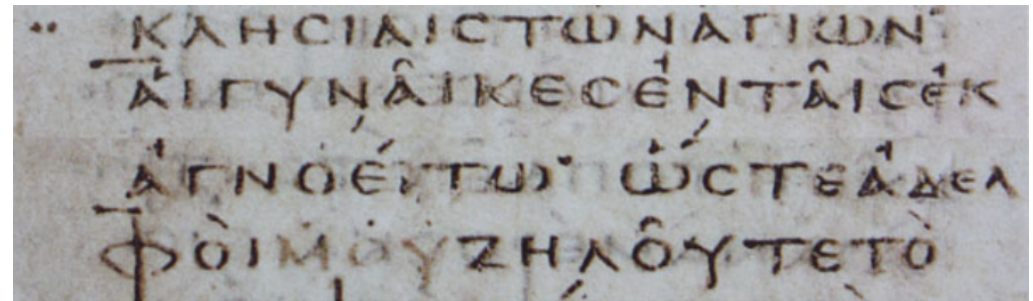 ΚΛΗϹΙΑΙϹΤΩΝΑΓΙΩΝ·
ἈΙΓΥΝΑ͂ΙΚΕϹἘΝΤΑ͂ΙϹἘΚ
ἈΓΝΟΕΊΤΩ· ὭϹΤΕἈΔΕΛ
ΦΟῚΜΟΥΖΗΛΟΥ͂ΤΕΤῸ